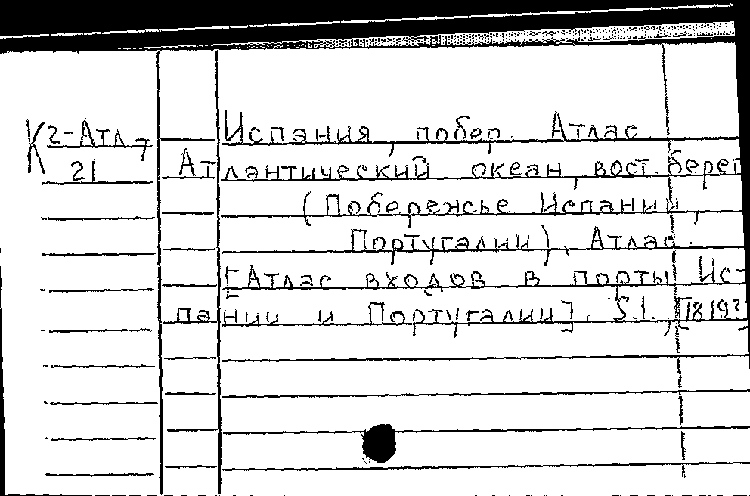 К 2-Атл. 7
21
Испания, побер. Атлас.
Атлантический океан, вост. берег
(Побережье Испании,
Португалии). Атлас.
[Атлас входов в порты Ис-
пании и Португалии]. S.l., [1819?